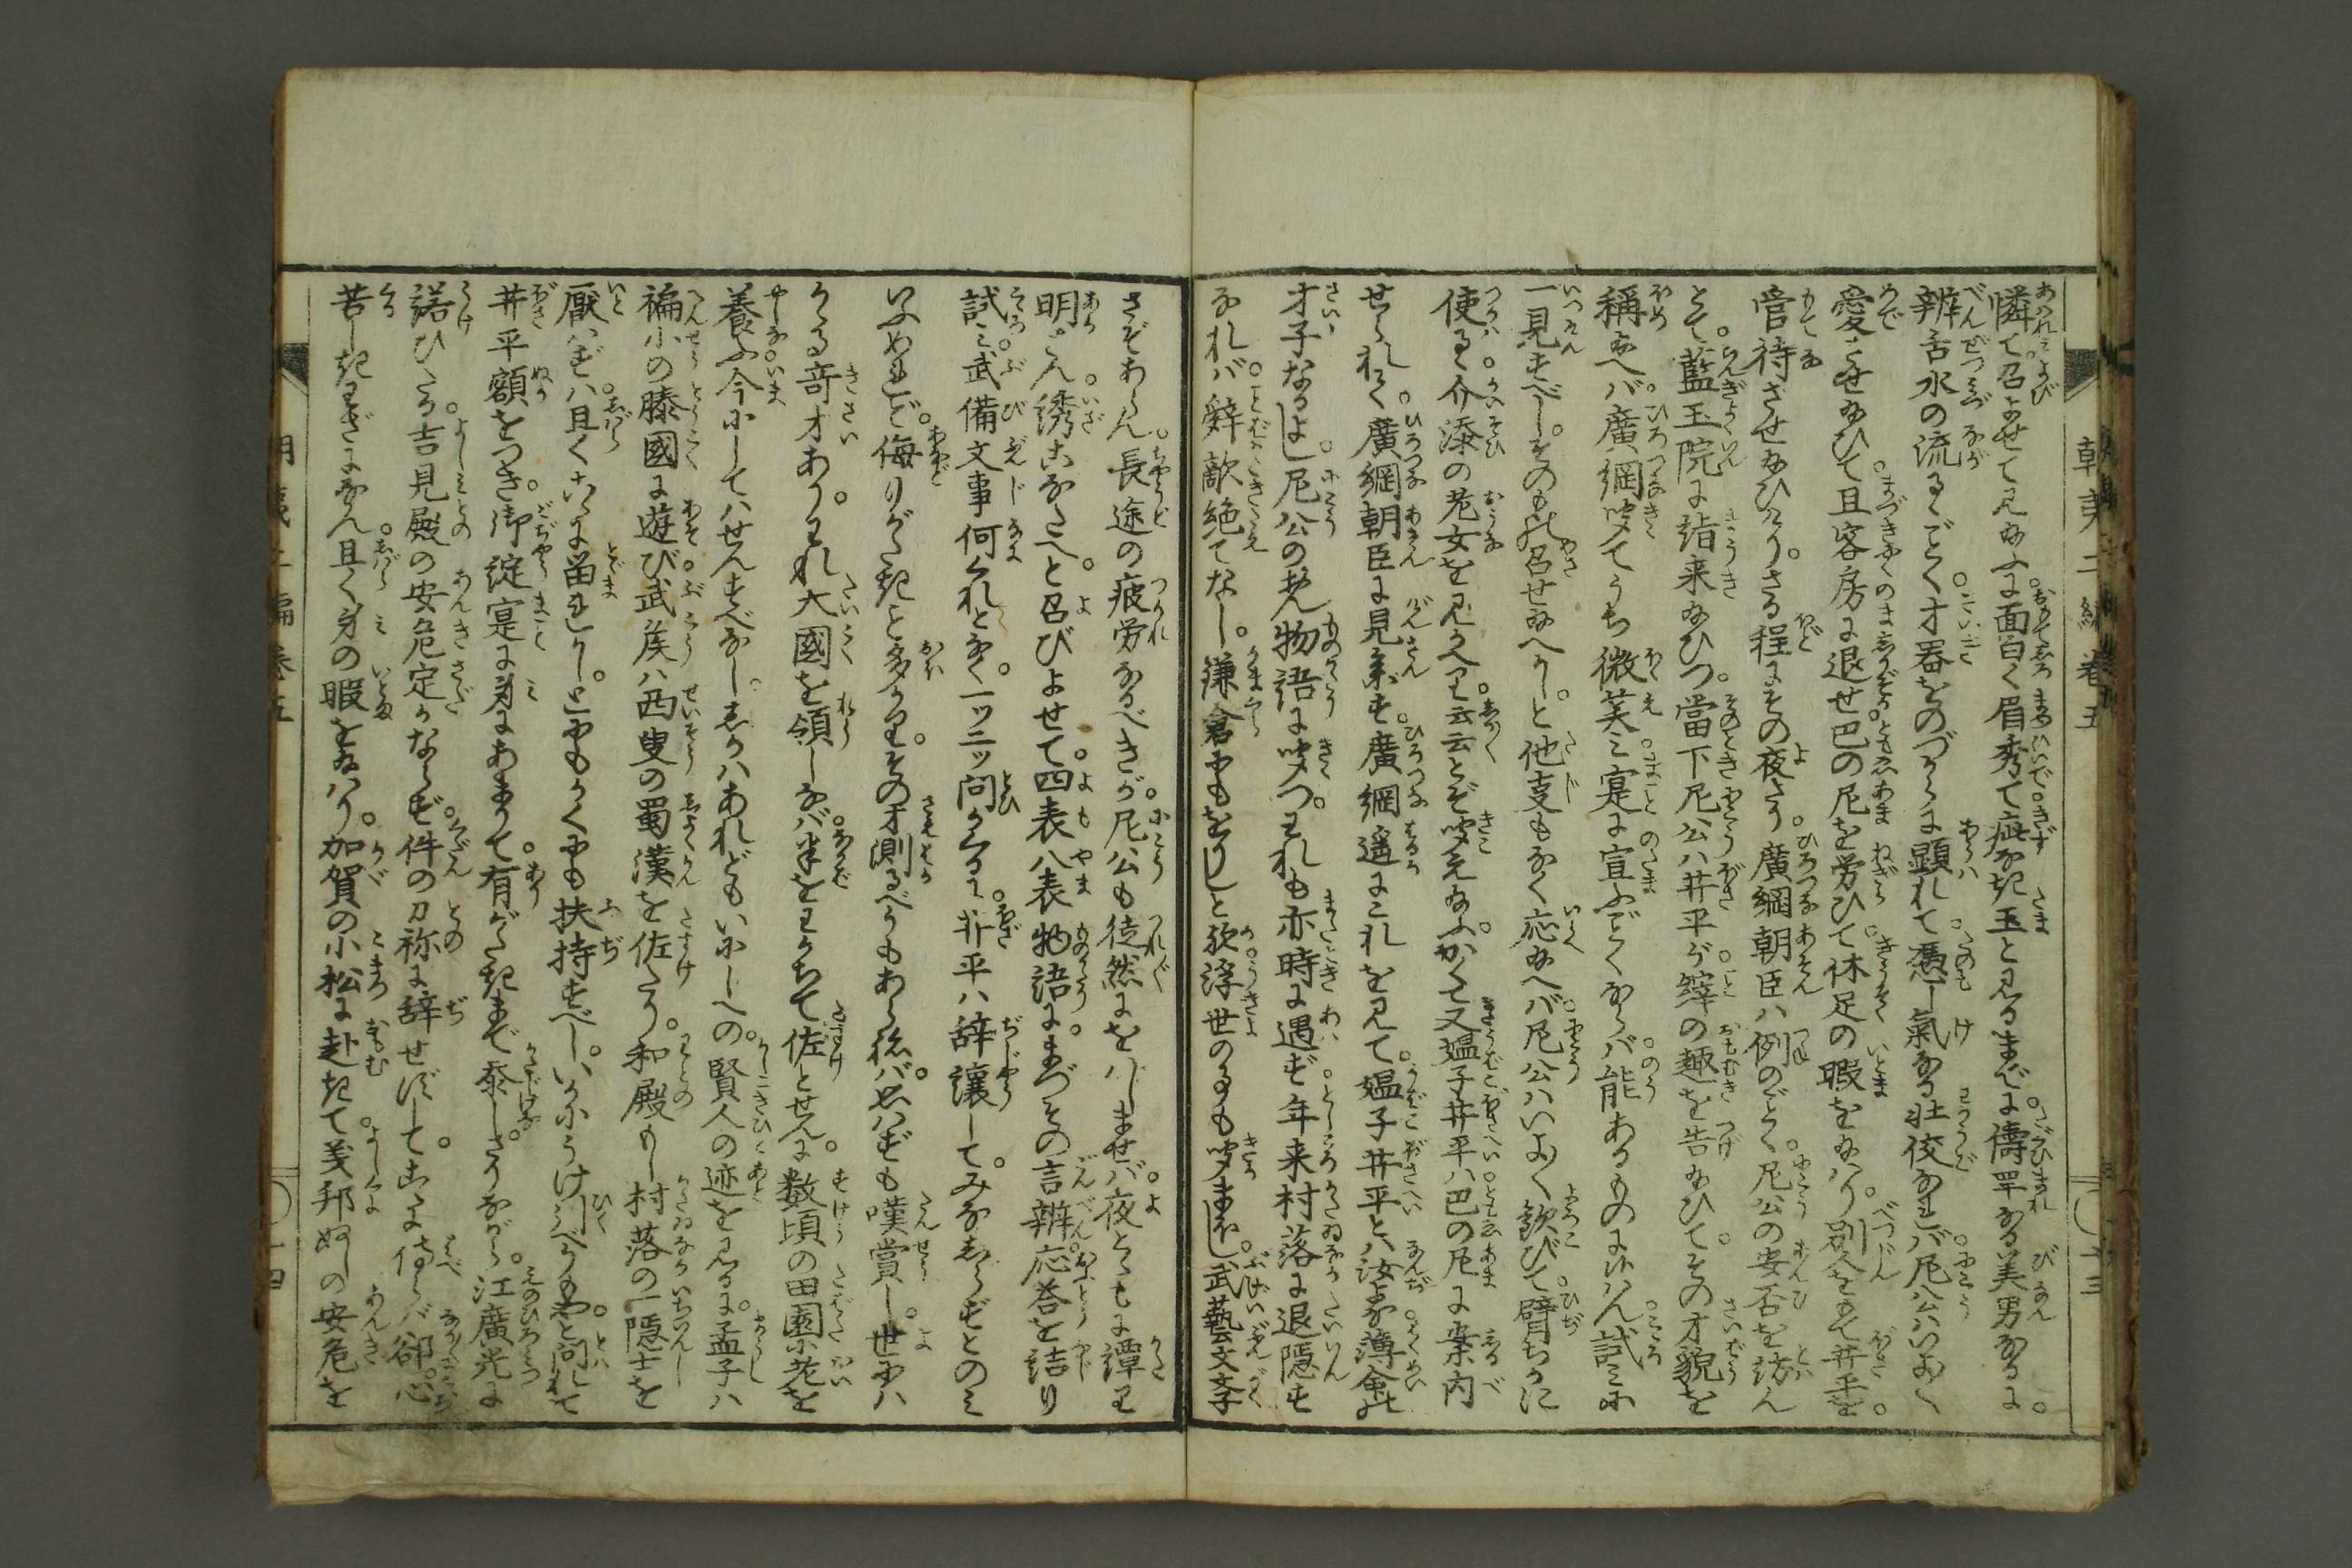 憐て召よせて見給ふに面白く眉秀て疵なき玉と見るまでに儔罕なる美男なるに
辨舌水の流るごとく才器をのづから顕れて憑し氣なる壯佼なれバ尼公ハいよ〳〵
愛させ給ひて且客房に退せ巴の尼を労ひて休足の暇を給ハり別人をもて井平を
管待させ給ひけりさる程にその夜さり廣綱朝臣ハ例のごとく尼公の安否を訪ん
とて藍玉院に詣来給ひつ當下尼公ハ井平が縡の趣を告給ひてその才貌を
稱給へバ廣綱聞てうち微笑ミ寔に宣ふごとくならバ能あるものに候ハん試ミに
一見すべしそのものめ召せ給へかしと他事もなく応給へバ尼公ハいよ〳〵歓びて臂ちかに
使るゝ介添の老女を見かへり云云とぞ聞え給ふかくて又媼子井平ハ巴の尼に案内
せられて廣綱朝臣に見参す廣綱遥にこれを見て媼子井平とハ汝なりな薄命の
才子なるよし尼公のおん物語に聞つわれも亦時に遇ず年来村落に退隠す
なれバ辭敵絶てなし鎌倉にもをりしと歟浮世の事も聞まほし武藝文学
さぞあらん長途の疲労なるべきが尼公も徒然にをハしませバ夜とゝもに譚り
明さん誘こなたへと召びよせて四表八表の物語にまづその言辨応答を詰り
試ミ武備文事何くれとなく一ッ二ッ問かくるに井平ハ辞譲してみなしらずとのミ
いふめれど侮りがたきこと多かりその才測るべうもあらねバ思ハずも嘆賞し世にハ
かゝる竒才ありわれ大國を領しなバ半をわかちて佐とせんに数頃の田園に老を
養ふ今にしてハせんすべなししかハあれどもいにしへの賢人の迹を見るに孟子ハ
褊小の滕國に遊び武侯ハ西叟の蜀漢を佐たり和殿もし村落の一隠士を
厭ハずハ且くこゝに留れかしともかくも扶持すべしいかにうけ引べうもやと問れて
井平額をつき御綻寔に身にあまりて有がたきまで忝しさりながら江廣光に
諾ひたる吉見殿の安危定かならず件の刀祢に辞せずしてこゝに侍らバ卻心
苦しきわざになん且く身の暇を給ハり加賀の小松に赴きて義邦ぬしの安危を
朝夷二編巻五